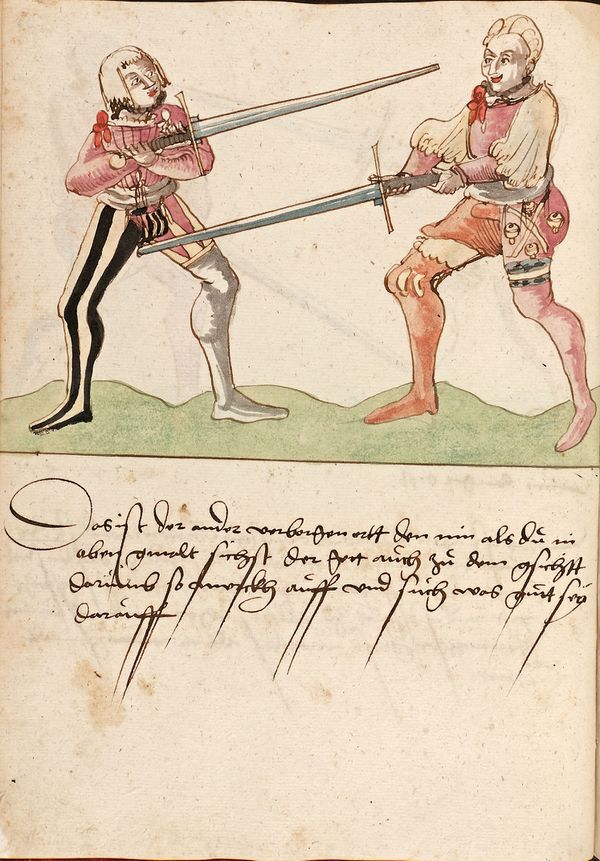 Das ist der ander verborgen ortt den nim als du in
oben gmalt sichst der get auch zu dem gsicht
darumb so merckh auff und such was gutt sey
darauff